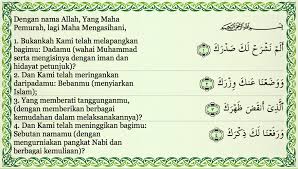 Dengan nama Allah, Yang Maha
Pemurah, lagi Maha Mengasihani,
1. Bukankah Kami telah melapangkan
bagimu: Dadamu (wahai Muhammad
serta mengisinya dengan iman dan
hidayat petunjuk)?
أَلَمْ نَشْرَحْ لَكَ صَدْرَكَ
2. Dan Kami telah meringankan
daripadamu: Bebanmu (menyiarkan
Islam);
وَوَضَعْنَا عَنكَ وِزْرَكَ
3. Yang memberati tanggunganmu,
(dengan memberikan berbagai
kemudahan dalam melaksanakannya)?
ٱلَّذِىٓ أَنقَضَ ظَهْرَكَ
4. Dan Kami telah meninggikan bagimu:
Sebutan namamu (dengan
mengurniakan pangkat Nabi dan
berbagai kemuliaan)?
وَرَفَعْنَا لَكَ ذِكْرَكَ